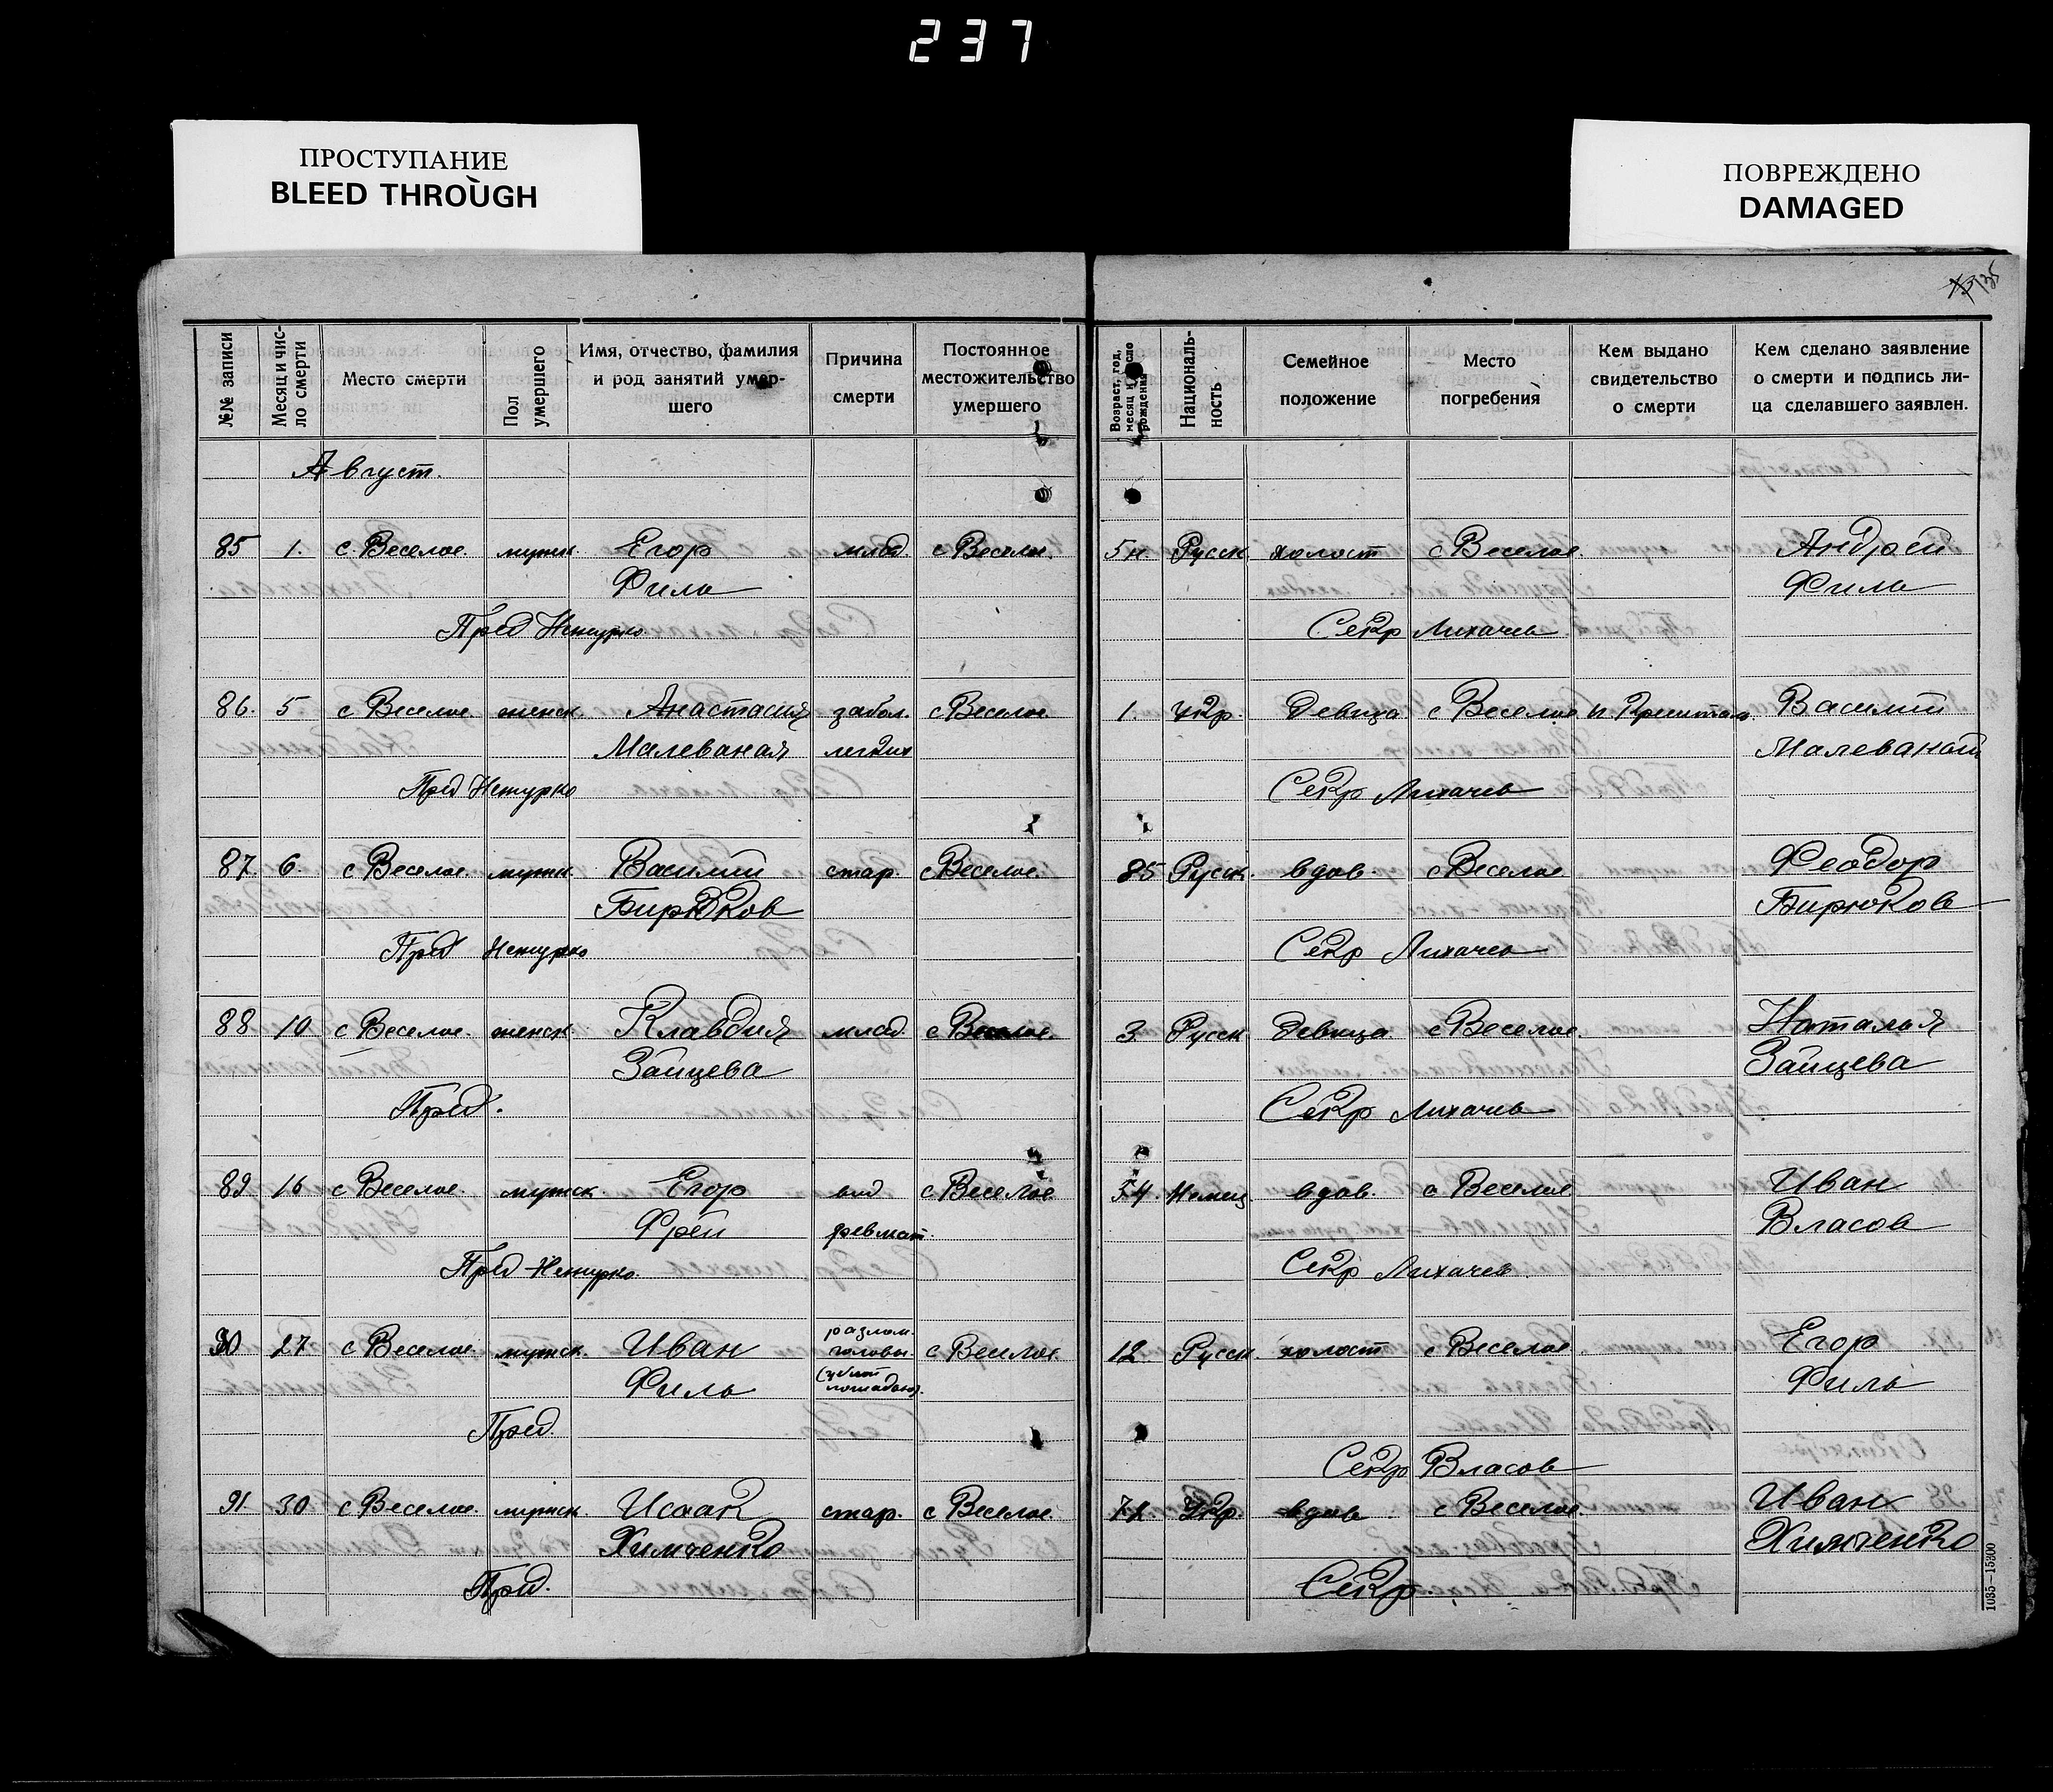 237
ПРОСТУПАНИЕ
BLEED THROUGH
ПОВРЕЖДЕНО
DAMAGED
№№ записи
Месяц и чис-
ло смерти
Место смерти
Пол
умершего
Имя, отчество, фамилия
и род занятий умер-
шего
Причина
смерти
Постоянное
местожительство
умершего
Возраст, год,
месяц и число
рождения
Националь-
ность
Семейное
положение
Место
погребения
Кем выдано
свидетельство
о смерти
Кем сделано заявление
о смерти и подпись ли-
ца сделавшего заявлен.
Август.
85 1. с. Веселое. мужск. Егор млад с Веселое. 5 н Русск. холост с Веселое. Андрей
Филь Филь
Пред Нежурко Секр Лихачев
86. 5 с Веселое. женск. Анастасия забол. с Веселое 1. Укр. девица с Веселое Василий
Малеваная легких Малеваный
Пред Нежурко Секр Лихачев
87. 6. с Веселое. мужск. Василий стар. с Веселое. 85 Русск. вдов. с Веселое Феодор
Бирюков Бирюков
Пред Нежурко Секр Лихачев
88 10 с Веселое. женск. Клавдия млад. с Веселое. 3 Русск. девица. с Веселое. Наталья
Зайцева Зайцева
Пред. Секр Лихачев
89 16 с Веселое. мужск. Егор с Веселое 54. Немец вдов. с Веселое Иван
Фрей ревмат. Власов
Пред Нежурко. Секр Лихачев.
90 27 с Веселое. мужск. Иван разлом. головы. (убит лошадью). с Веселое 12. Русск. холост с Веселое. Егор
Филь Филь
Пред.
Секр Власов
91. 30 с Веселое. мужск Исаак стар. с Веселое. 72. Укр. вдов с Веселое. Иван
Химченко Химченко
Пред. Секр.
1035–15300